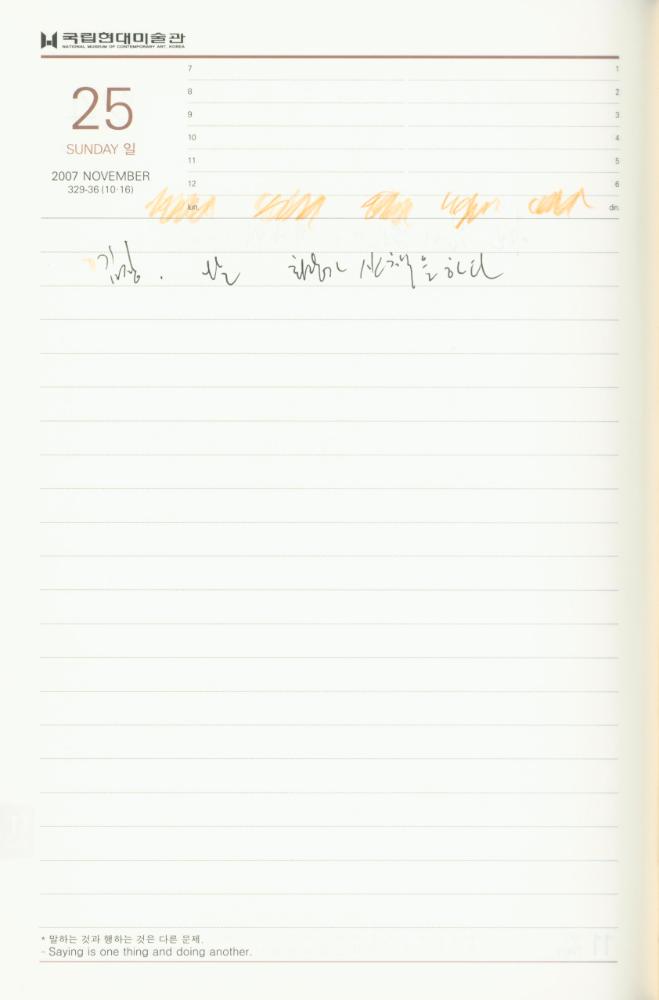 국립현대미술관
NATIONAL MUSEUM OF CONTEMPORARY ART, KOREA
25
SUNDAY 일
2007 NOVEMBER
329-36 (10·16)
7
8
9
10
11
12
lun.
1
2
3
4
5
6
din.
산책을 하다
* 말하는 것과 행하는 것은 다른 문제.
- Saying is one thing and doing another.
11